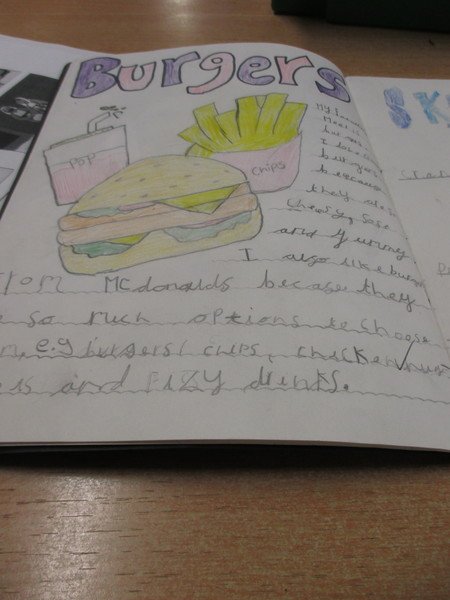 Burgers
POP
chips
My
Meat is
burgers
I like
burgers
because
they
chewy, Soft
and Yummy
I also like burgers
from McDonalds because they
so much options to choose
e.g burgers/ chips, chicken
and Fizzy drinks.
SK